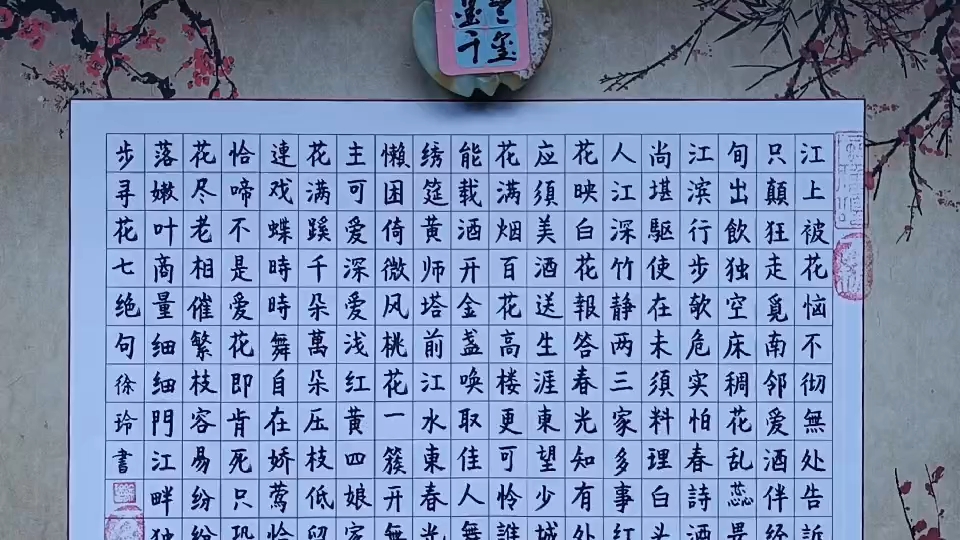 江上被花恼不彻無处告訴
只顛狂走覓南邻爱酒伴经
旬出飲独空床稠花乱蕊畏
江滨行步欹危实怕春詩酒
尚堪驅使在未須料理白头
人江深竹静两三家多事红
花映白花報答春光知有处
应須美酒送生涯東望少城
花满烟百花高楼更可怜誰
能载酒开金盏唤取佳人舞
绣筵黄师塔前江水東春光
懒困倚微风桃花一簇开無
主可爱深爱浅红黄四娘家
花满蹊千朵萬朵压枝低留
連戏蝶時時舞自在娇莺恰
恰啼不是爱花即肯死只恐
花尽老相催繁枝容易纷纷
落嫩叶商量细细門江畔独
步寻花七绝句徐玲書